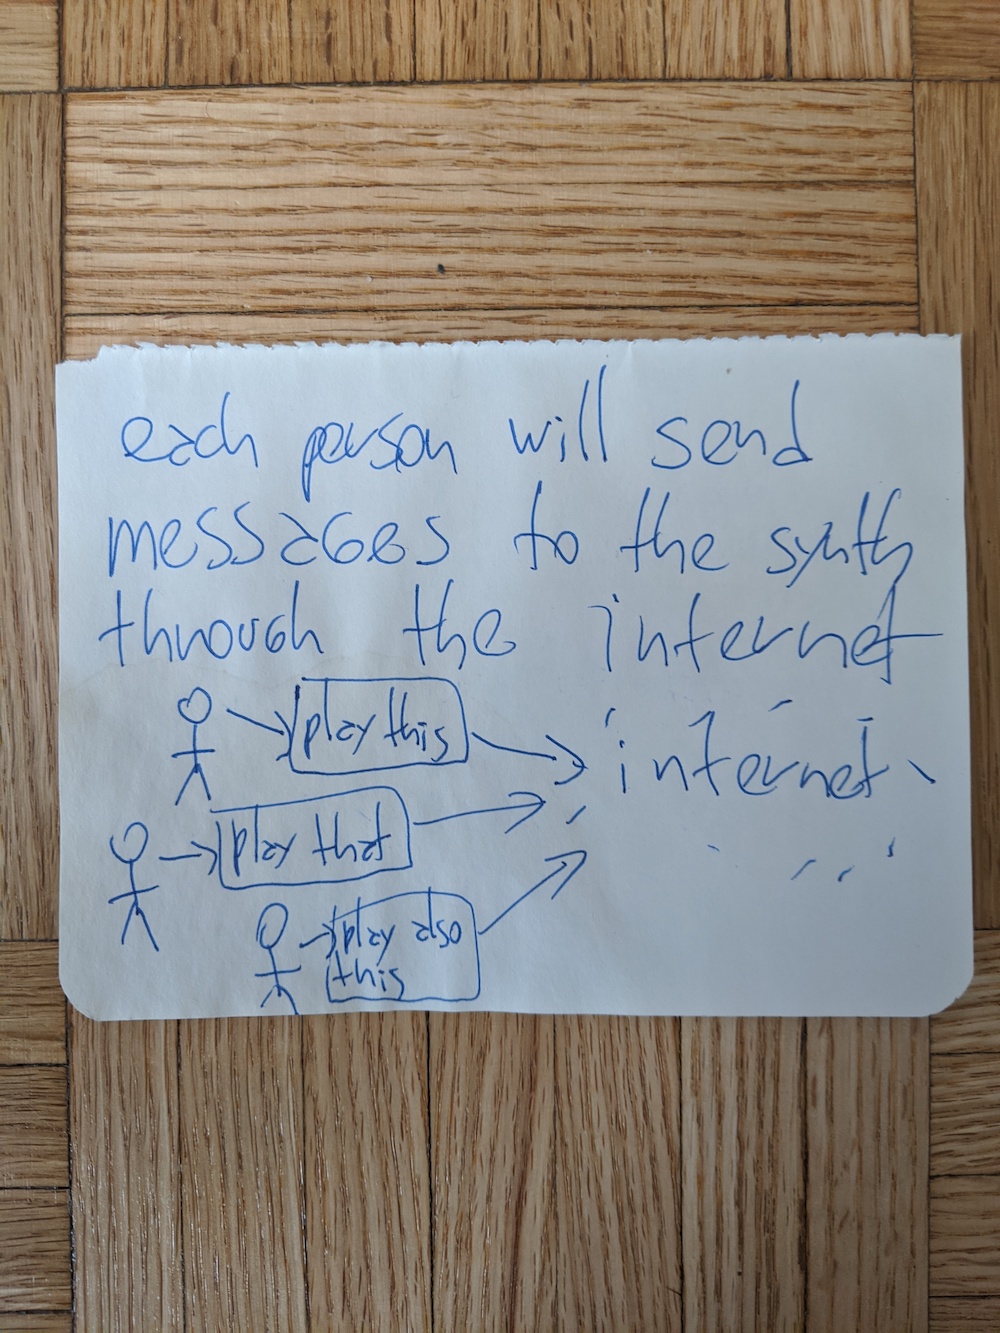 each person will send
messages to the synth
through the internet
play this
internet
play that
play also
this